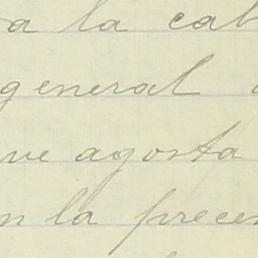 a la cab
general
ve agosta
n la precen